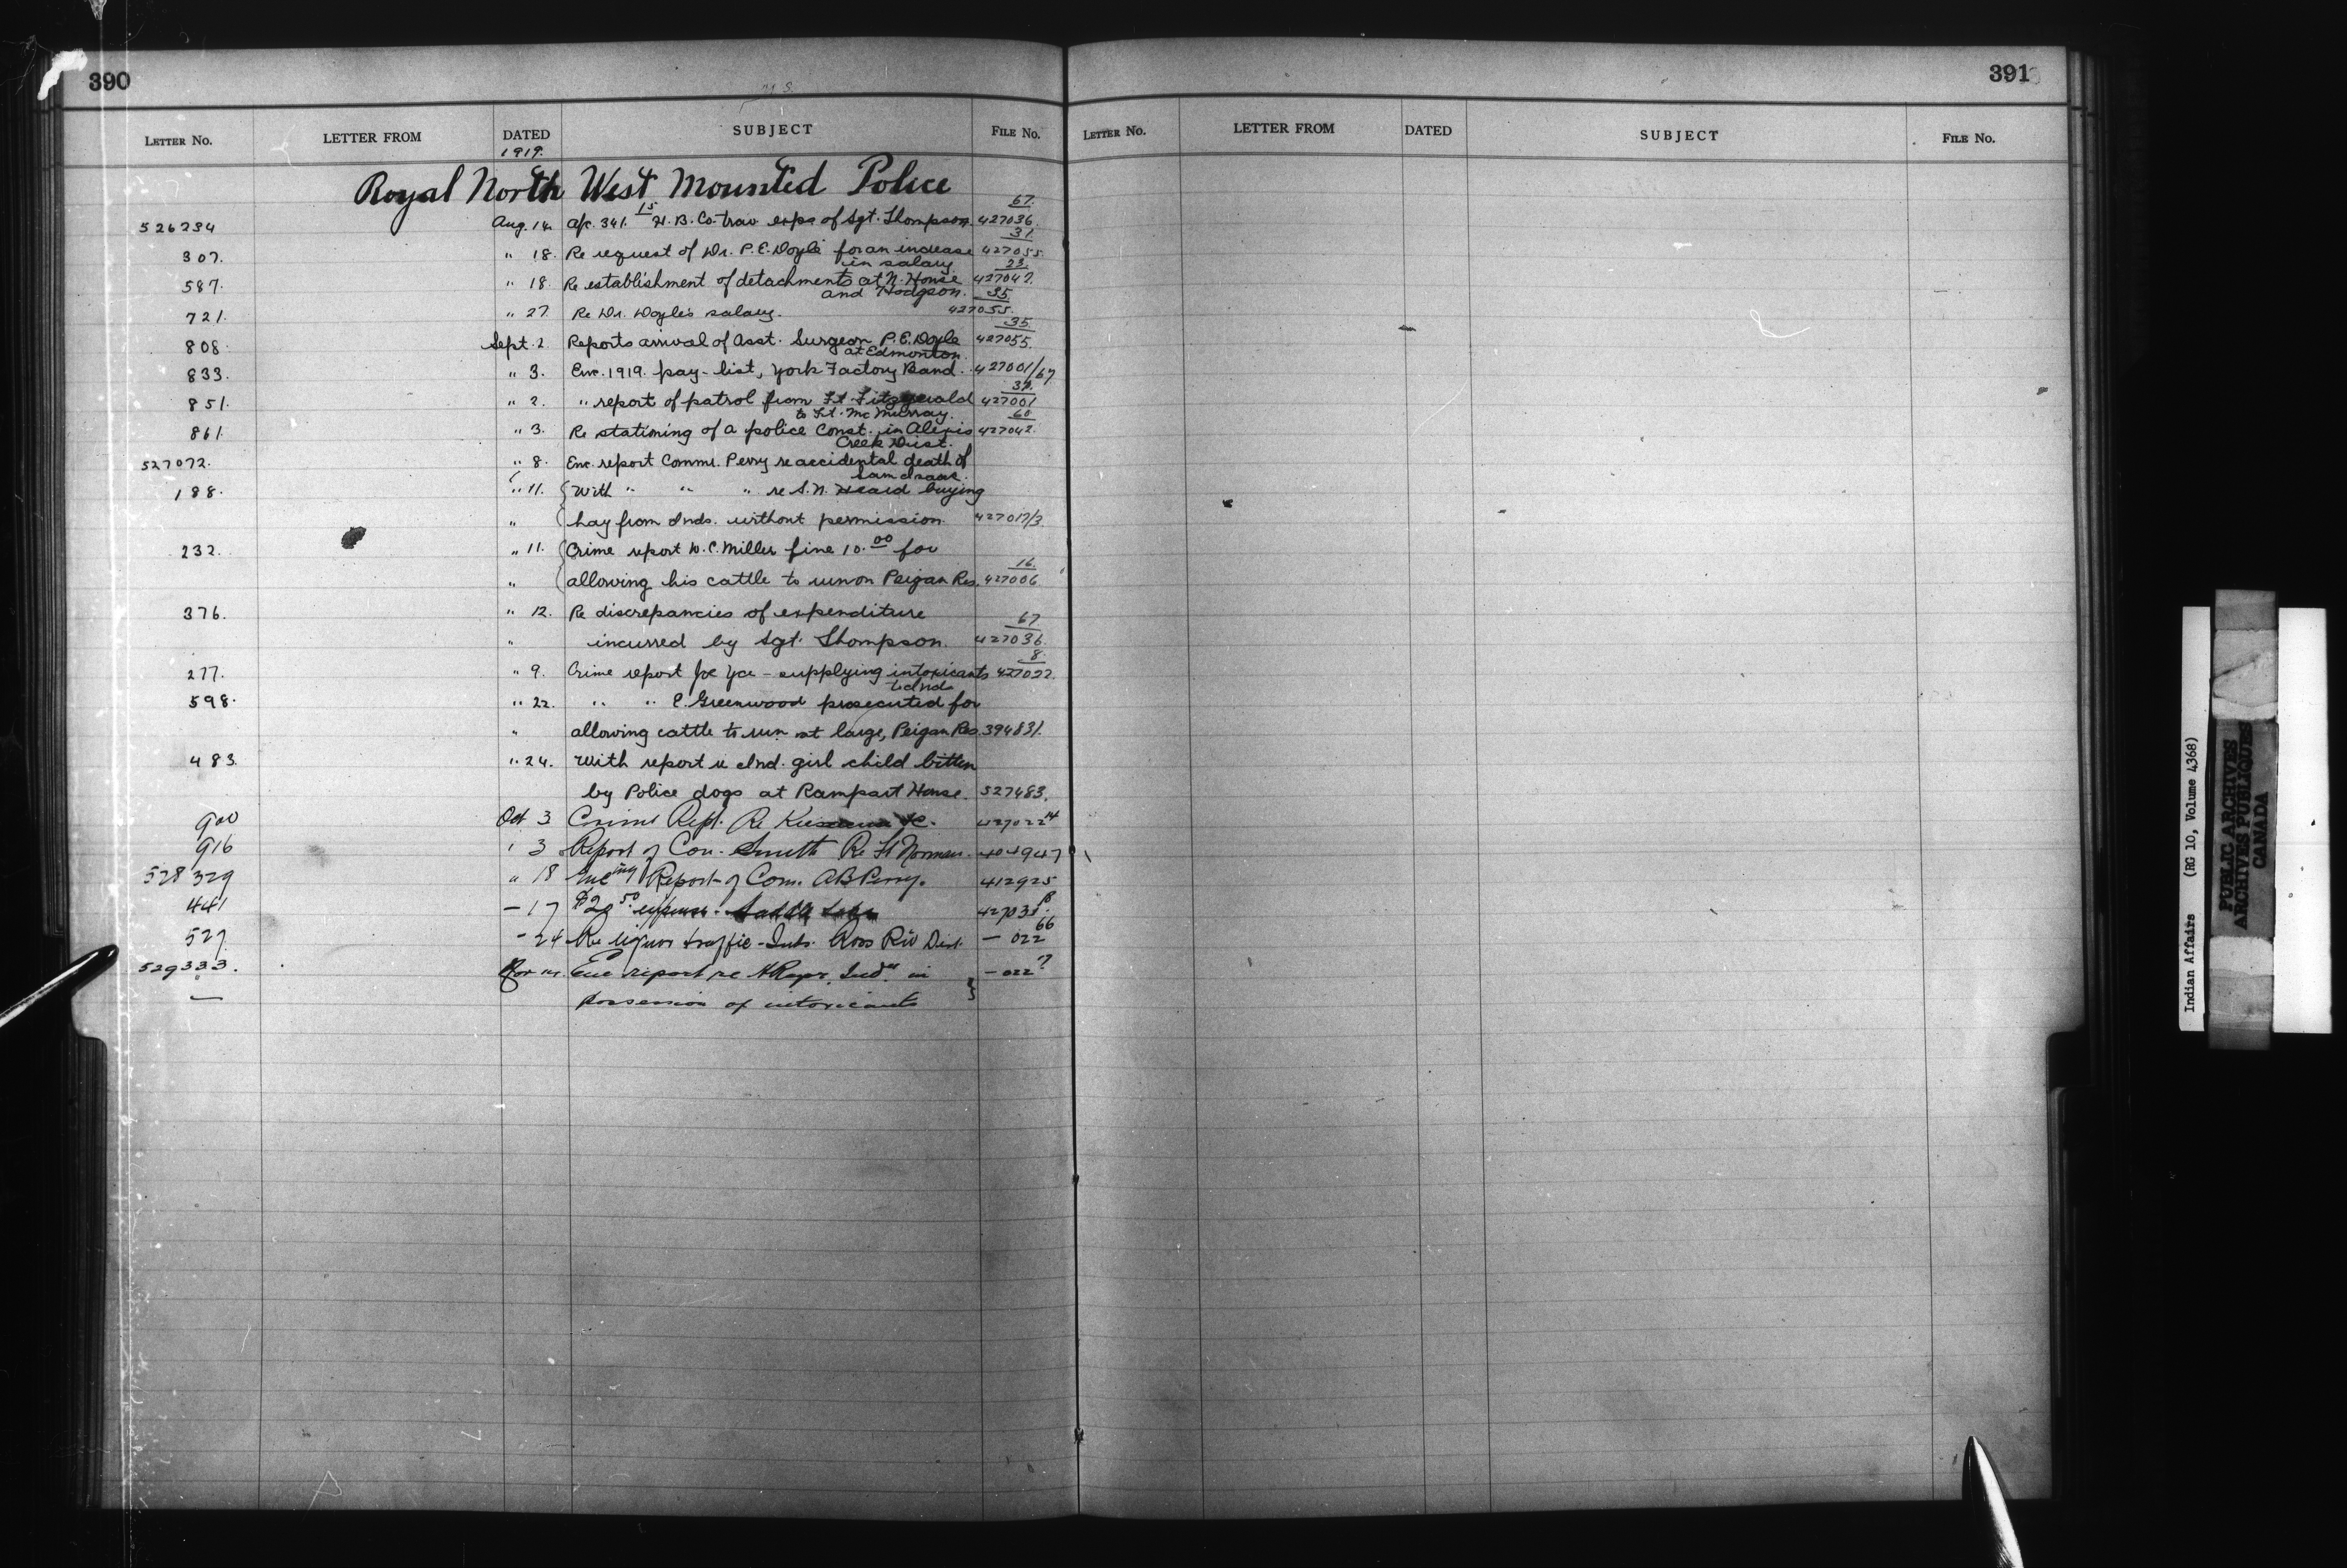 390
391
LETTER No. LETTER FROM DATED SUBJECT FILE No.
LETTER No. LETTER FROM DATED SUBJECT FILE No.
1919.
Royal North West Mounted Police
67.
526234 Aug. 14. a/c. 341.15 H. B. Co. trav. exps of Sgt. Thompson. 427036.
31.
307. " 18. Re request of Dr. P. E. Doyle for an increase 427055
in salary. 23.
587. " 18. Re establishment of detachments at N. House 427047.
and Hodgson. 35.
721. " 27. Re Dr. Doyle's salary. 427055.
35.
808. Sept. 2. Reports arrival of Asst. Surgeon P. E. Doyle 427055.
at Edmonton.
833. " 3. Enc. 1919. pay-list, York Factory Band. 427001/67
851. " 2. " report of patrol from Ft. Fitzgerald 427001
to Ft. McMurray. 60
861. " 3. Re stationing of a police Const. in Alexis 427042.
Creek Dist.
527072. " 8. Enc. report Commr. Perry re accidental death of
Sam Isaac.
188. " 11. With " " " re S. N. Heard buying
" hay from Inds. without permission. 427017/3.
232. " 11. Crime report W. C. Miller fine 10.00 for
16.
" allowing his cattle to run on Peigan Res. 427006
376. " 12. Re discrepancies of expenditure
67
" incurred by Sgt. Thompson. 427036.
8.
277. " 9. Crime report Joe Yce - supplying intoxicants 427022.
to Inds
598. " 22. " " E. Greenwood prosecuted for
" allowing cattle to run at large, Peigan Res. 394831.
483. " 24. With report re Ind. girl child bitten
by Police dogs at Rampart House. 527483.
900 Oct 3 Crime Rept. Re 427022 14
916 " 3 Report of Con. Smith Re Ft Norman. 404947
528329 " 18 Encing Report of Com. AB Perry. 412925
441 - 17 expenses
527 - 24 Re liquor traffic - Inds. Ross Riv Dist. - 022 66
529333. Enc report re Inds. in - 022 7
possession of intoxicants
Indian Affairs (RG 10, Volume 4368)
PUBLIC ARCHIVES
ARCHIVES PUBLIQUES
CANADA